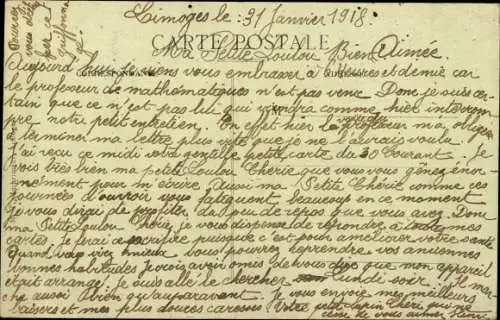 Limoges le : 31 Janvier 1918.
CARTE POSTALE
Ma Petite Loulou Bien Aimée
CORRESPONDANCE
Aujourd'hui je viens vous embrasser à heures et demie car
le professeur de mathématiques n'est pas venu. Donc je suis cer-
tain que ce n'est pas lui qui viendra comme hier interrom-
pre notre petit entretien. En effet hier le professeur m'a obligé
à terminer ma lettre plus vite que je ne l'aurais voulu.
J'ai reçu ce midi votre gentille petite carte du 30 Courant. Je
vois très bien ma petite Loulou Chérie que vous vous gênez énor-
mément pour m'écrire. Aussi ma Petite Chérie comme ces
journées d'ouvroir vous fatiguent beaucoup en ce moment
je vous dirai de profiter du peu de repos que vous avez. Donc
ma Petite Loulou Chérie, je vous dispense de répondre à toutes mes
cartes, je ferai ce sacrifice puisque c'est pour améliorer votre santé
Quand vous irez mieux vous pourrez reprendre vos anciennes
bonnes habitudes. Je crois avoir omis de vous dire que mon appareil
était arrangé. Je suis allé le chercher lundi soir. Il
aussi bien qu'auparavant. Je vous envoie mes meilleurs
baisers et mes plus douces caresses Votre petit Chéri qui ne
cesse de vous aimer